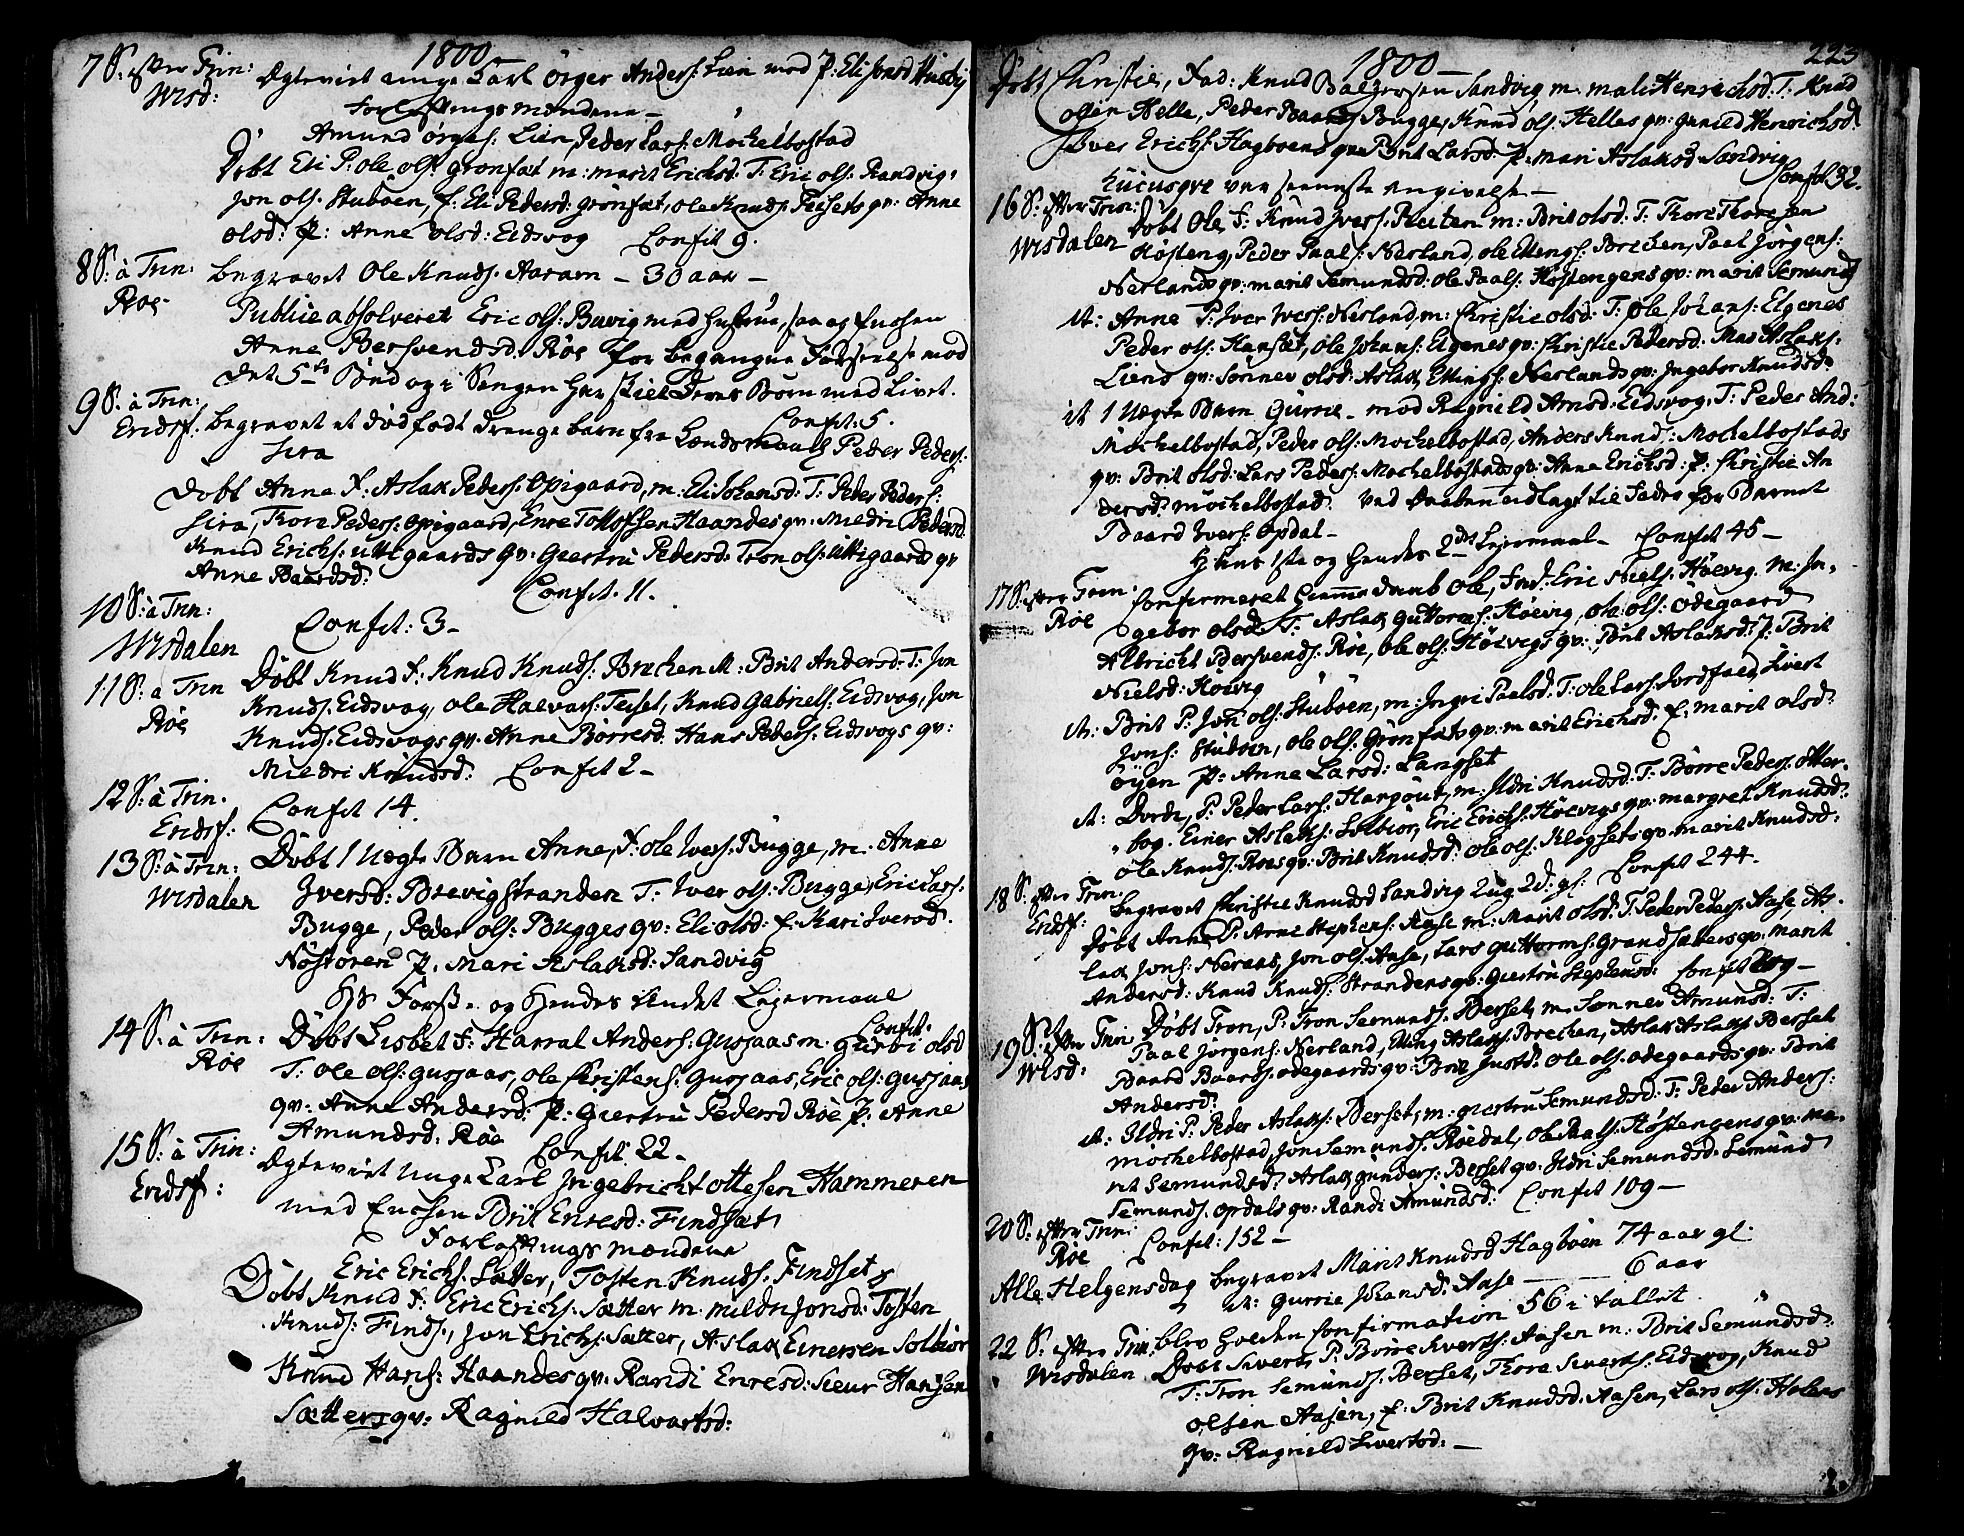 1800
7 S. efter Trin: Egteviet unge Karl Örger Anders: Lien med P. Eli Jonsd Husby
Wisd: Forlofnings Mændene
Amund Örges: Lien, Peder Lars: Mochelbostad
Döbt Eli P: Ole Ols: Grönfæt m: Marit Erichsd: T: Eric Ols: Randvig,
Jon Ols: Stuboen, K. Eli Pedersd: Grönfæt, Ole Knuds: Teisets qv: Anne
Olsd: P: Anne Olsd: Eidsvog Confit 9.
8 S: à Trin: begravet Ole Knuds. Aaram – 30 aar –
Röe Publice absolveret Eric Ols: Buvig med hustrue, saa og Enchen
Anne Bersvendsd. Röe for begangne Forseelse mod
det 5te Bud og i Sengen har qvalt Deres Börn med livet.
9 S. à Trin: Confit: 5.
Eridsf. begravet et dödfödt drenge barn fra Lændsmands Peder Peders:
Sira
Döbt Anne F. Aslak Peders: Opigaard, m. Eli Johansd: T: Peder Peders:
Sira, Tore Peders: Opigaard, Enre Tollofsen Haandes qv: Mildri Pedersd.
Knud Erichs: Uttigaards qv: Giertru Pedersd: Tron Ols: Uttigaards qv
Anne Baardsd:
Confit. 11.
10 S: à Trin:
Wisdalen Confit: 3 –
11 S: a Trin Döbt Knud F: Knud Knuds: Brechen M: Brit Andersd: T: Jon
Röe Knuds. Eidsvog, Ole Halvars: Teiset, Knud Gabriels: Eidsvog, Jon
Knuds. Eidsvogs qv: Anne Börresd. Hans Peders: Eidsvogs qv:
Mildri Knudsd: Confit 2 –
12 S: à Trin.
Eridsf: Confit 14.
13 S: à Trin: Döbt 1 Uegte Barn Anne, F: Ole Ivers: Bugge, m: Anne
Wisdalen Iversd: Brevigstranden T: Iver Ols: Bugge, Eric Lars:
Bugge, Peder Ols: Bugges qv: Eli Olsd: K: Kari Iversd.
Nöstören P. Mari Aslaksd: Sandvig
Hs Förste og hendes andet Leiermaal
14 S: à Trin: Confit:
Röe Döbt Lisbet F: Harral Anders: Gusjaas m. Guroi Olsd
T: Ole Ols: Gusjaas, Ole Kristens: Gusjaas, Eric Ols: Gusjaas
qv: Anne Andersd: P: Giertru Pedersd Röe P: Anne
Amundsd: Röe Confit. 22 –
15 S: à Trin: Egteviet unge Karl Ingebricht Ottesen Hammeren
Eridsf: med Enchen Brit Enresd: Findsæt
Forlofnings Mændene
Eric Erichs. Sætter, Tosten Knuds. Findset
Döbt Knud F: Eric Erichs: Sætter m. Mildri Jonsd: Tosten
Knuds: Finds., Jon Erichs: Sætter, Aslak Einersen Solbiör
Knud Hans: Haandes qv. Randi Enresd: Sieur Hansen
Sætters qv: Ragnild Halvartsd:
1800 – 223
Döbt Christie, Fad: Knud Balzersen Sandvig m: Mali Henrichsd. T: Knud
Olsen Helle, Peder Baards: Bugge, Knud Ols: Helles qv: Gunild Henrichsd.
Iver Erichs: Hagboens qv: Brit Larsd: P: Mari Aslaksd. Sandvig
Hucusqve var seeneste angivelse – Confit 32.
16 S: efter Trin: Döbt Ole F: Knud Ivers: Reiten m: Brit Olsd: T: Tore Toresen
Wisdalen Höstæng, Peder Paals: Nerland, Ole Ellings: Brechen, Paal Jörgens:
Nerlands qv: Marit Semundsd: Ole Paals: Höstengens qv: Marit Semundsd
it: Anne P: Iver Ivers: Nerland, m: Christie Olsd: T: Ole Johans: Elgenes
Peder Ols: Hansæt, Ole Johans: Elgenes qv: Christie Pedersd. Mas Aslaks:
Liens qv: Sönnev Olsd: Aslak Ellings: Nerlands qv: Ingebor Knudsd:
it 1 Uegte Barn Gurrie – mod Ragnild Arnsd: Eidsvog. T: Peder And:
Mochelbostad, Peder Ols: Mochelbostad, Anders Knuds: Mochelbostads
qv: Brit Olsd: Lars Peders: Mochelbostads qv: Anne Erichsd: P: Christie An
dersd: Mochelbostad. Ved Daaben udlagt til Fader for Barnet
Baard Ivers: Opdal –
Hans 1ste og hendes 2det Leiermaal – Confit 45 –
17 S: efter Trin: Confirmeret hiemme daab Ole, Fad: Eric Niels: Höevig. M: In,
Röe gebor Olsd: T: Aslak Guttorms: Höevig, Ole Ols: Ödegaard
Albricht Bersvends: Röe, Ole Ols: Höevigs qv: Brit Aslaksd: P: Brit
Nielsd: Höevig
it: Brit P: Jon Ols: Stuboen, m: Ingri Paalsd. T: Ole Lars: Jordfald, Sivert
Jons: Stuboen, Ole Ols: Grönfæts qv: Marit Erichsd. K: Marit Olsd:
Öyen P: Anne Larsd: Langset
it: Dorde, P: Peder Lars: Hargöut, m: Ildri Knudsd: T: Börre Peders: Otter,
bog. Einer Aslaks: Solbiör, Eric Erichs: Höevigs qv: Margret Knudsd.
Ole Knuds. Roes qv: Brit Knudsd: Ole Ols: Klogsets qv: Marit Knudsd:
Confit 244.
18 S. efter Trin. begravet Christie Knudsd Sandvig 2 ug 2 d: gl:
Eridsf: Döbt Anne P: Arne Stephens: Aase m: Marit Olsd: T: Peder Peders: Aase, As,
lak Jons: Neraas, Jon Ols: Aase, Lars Guttorms: Grandsæters qv: Marit
Andersd: Knud Knuds: Strandens qv: Giertru Stephensd: Confit 209 –
19 S: efter Trin Döbt Tron, P: Tron Semunds: Berset, m. Sönnev Amundsd: T:
Wisd: Paal Jörgens: Nerland, Elling Aslaks: Brechen, Aslak Aslaks: Berset
Baard Baards: Ödegaards qv: Brit Justsd: Ole Ols: Ödegaards qv: Brit
Andersd:
it: Ildri P. Peder Aslaks: Berset, m: Giertru Semundsd: T: Peder Anders:
Mochelbostad, Jon Semunds. Röedal, Ole Paals: Höstengens qv: Ma,
rit Semundsd: Aslak Gunders: Berset qv: Ildri Semundsd: Semund
Semunds. Opdals qv: Randi Amundsd: Confit 109 –
20 S: efter Trin:
Röe Confit: 152 –
Alle Helgensdag begravet Marit Knudsd Hagboen 74 aar gl:
it: Gurrie Johansd: Aase – 6 aar
blev holden Confirmation 56 i tallet
22 S: efter Trin: Döbt Siverts P: Börre Siverts: Aasen m: Brit Semundsd:
Wisdalen T: Tron Semunds: Berset, Tore Siverts: Eidsvog, Knud
Olsen Aasen, K: Brit Knudsd: Aasen, Lars Ols: Holens
qv: Ragnild Sivertsd: –